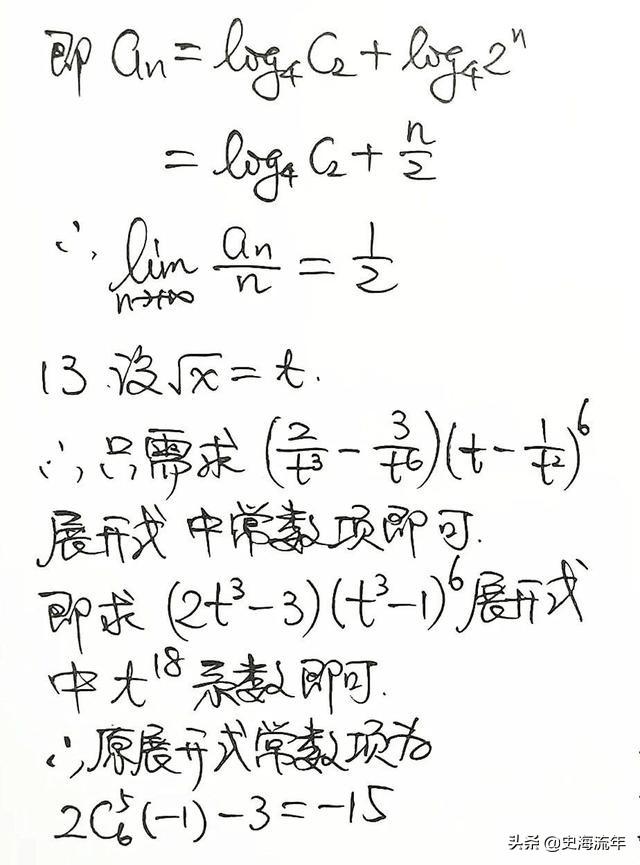 即 aₙ = log₄C₂ + log₄2ⁿ
= log₄C₂ + n/2
∴ lim n→+∞ aₙ/n = 1/2
13.设√x = t.
∴只需求 (2/t³ - 3/t⁶)(t - 1/t²)⁶
展开式中常数项即可.
即求 (2t³-3)(t³-1)⁶展开式
中t¹⁸系数即可.
∴原展开式常数项为
2C₆⁵(-1)-3=-15
头条 @史海流年